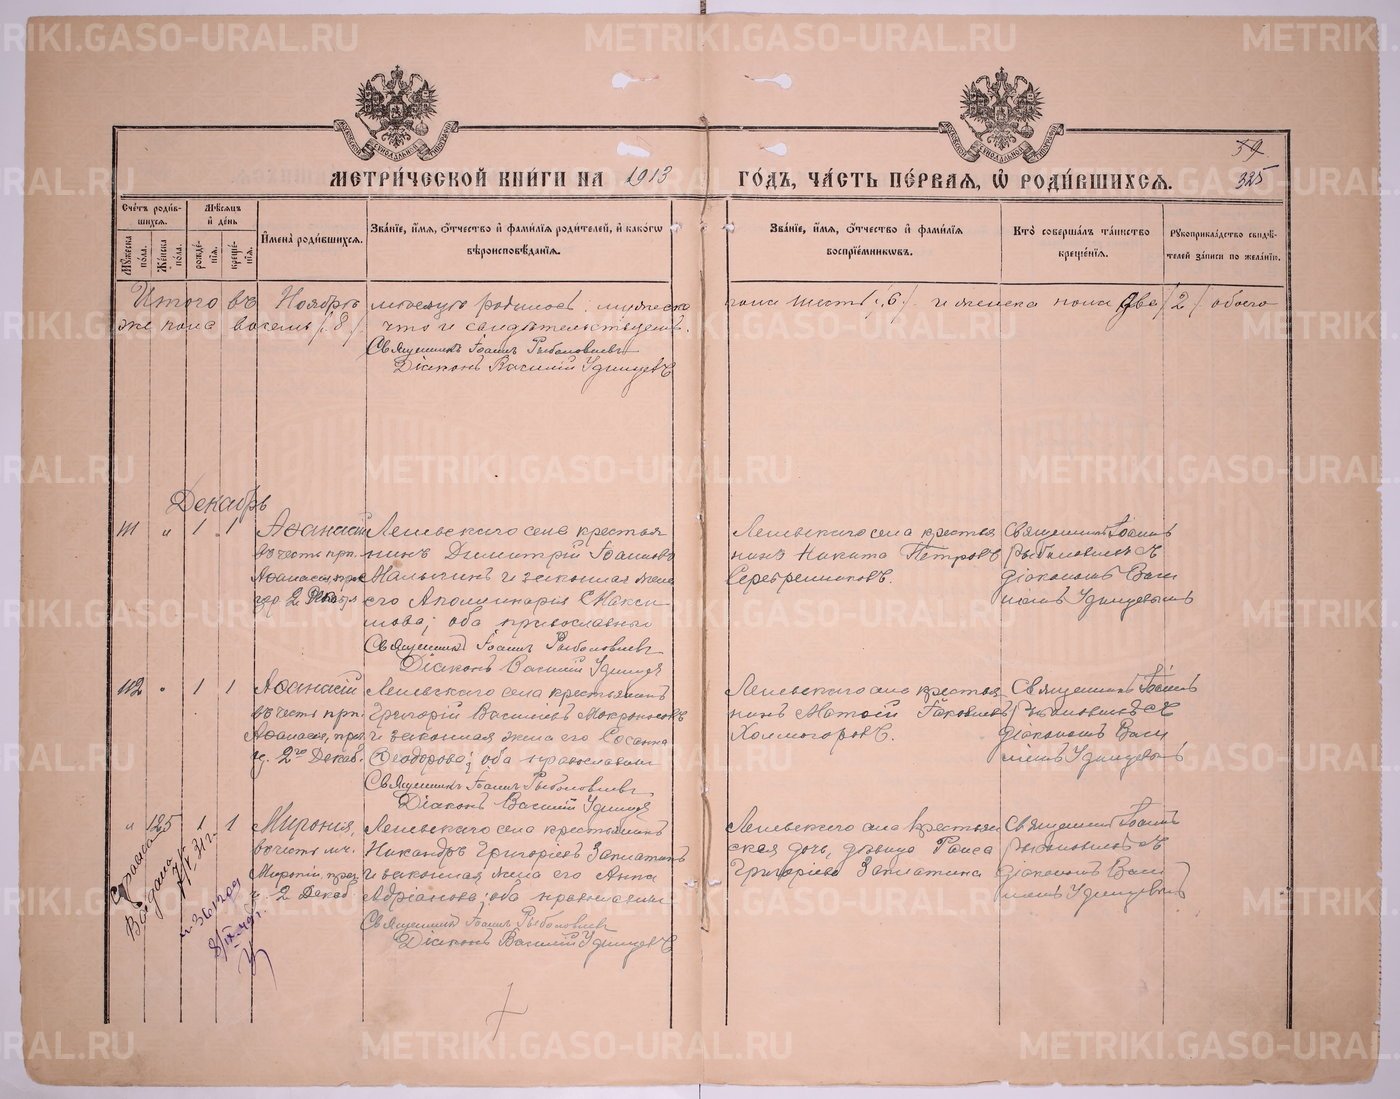 METRIKI.GASO-URAL.RU
59
МЕТРИ́ЧЕСКОЙ КНИ́ГИ НА 1913 ГО́ДЪ, ЧА́СТЬ ПЕ́РВАЯ, Ѡ РОДИ́ВШИХСЯ.
325
Сче́тъ роди́в-
шихся.
Му́жеска по́ла.
Же́нска по́ла.
Мѣ́сяцъ
и҆ де́нь
рожде́-
нїя.
креще́-
нїя.
И҆мена̀ роди́вшихся.
Зва́нїе, и҆́мя, ѻ҆́тчество и҆ фами́лїя роди́телей, и҆ како́гѡ
вѣроисповѣ́данїя.
Зва́нїе, и҆́мя, ѻ҆́тчество и҆ фами́лїя
воспрїе́мниковъ.
Кто̀ соверша́лъ та́инство
креще́нїя.
Рꙋкоприкла́дство свидѣ́-
телей за́писи по жела́нїю.
Итого въ Ноябрѣ мѣсяцѣ родилось: мужеска пола шесть /6/ и женска пола два /2/ обоего
же пола восемь /8/ что и свидѣтельствуемъ.
Священникъ Іоаннъ Рыболовлевъ
Діаконъ Василій Удинцевъ
Декабрь
111 " 1 1
Аѳанасій
въ честь прп.
Лепьвскаго села крестья
нинъ Димитрій Іоанновъ
и законная жена
его Аполлинарія Макси
мова; оба православные
Священникъ Іоаннъ Рыболовлевъ
Діаконъ Василій Удинцевъ
села крестья
нинъ Никита Петровъ
Серебренниковъ.
Священникъ Іоаннъ
Рыболовлевъ съ
діакономъ Васи
ліемъ Удинцевымъ
112 " 1 1
Аѳанасій
въ честь прп.
Аѳанасія, праз.
2го Декаб.
села крестьянинъ
Григорій Васильевъ Мокроносовъ
и законная жена его
Ѳеодорова; оба православные
Священникъ Іоаннъ Рыболовлевъ
Діаконъ Василій Удинцевъ
села крестья
нинъ Матѳій Іаковлевъ
Холмогоровъ.
Священникъ Іоаннъ
Рыболовлевъ съ
діакономъ Васи
ліемъ Удинцевымъ
" 125 1 1
въ честь мч.
2 Декаб.
села крестьянинъ
Никандръ Григорьевъ Заплатинъ
и законная жена его Анна
Адріанова; оба православные
Священникъ Іоаннъ Рыболовлевъ
Діаконъ Василій Удинцевъ
села крестьян
ская дочь, дѣвица Раиса
Григорьева Заплатина
Священникъ Іоаннъ
Рыболовлевъ съ
діакономъ Васи
ліемъ Удинцевымъ
Справка
Выдана